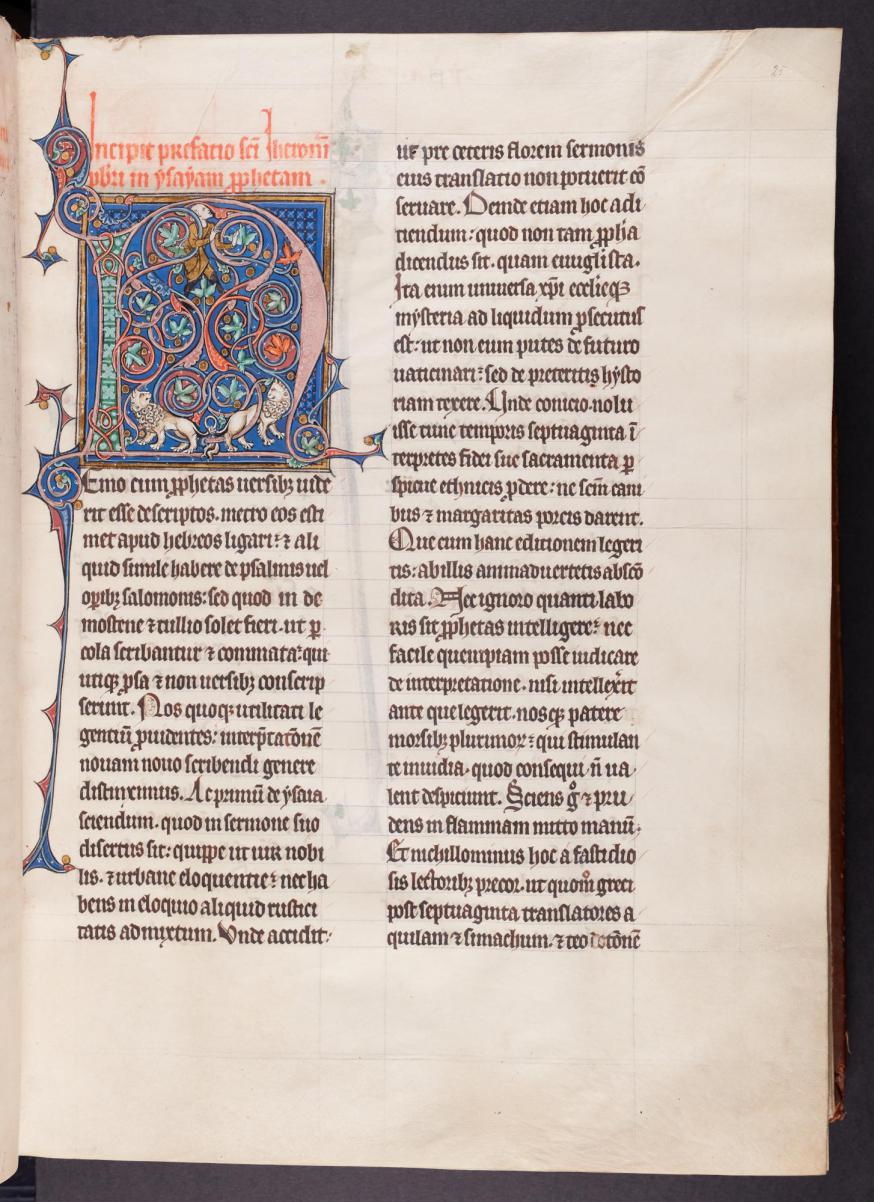 25
Incipit prefatio sci Iheronimi
pbri in ysayam ꝓphetam .
NEmo cum ꝓphetas uersibꝫ uide
rit esse descriptos. metro eos esti
met apud hebreos ligari: ⁊ ali
quid simile habere de psalmis uel
oꝑibꝫ salomonis: sed quod in de
mostene ⁊ tullio solet fieri. ut ꝑ
cola scribantur ⁊ commata: qui
utiqꝫ ꝓsa ⁊ non uersibꝫ conscrip
serunt. Nos quoqꝫ utilitati le
gentiū ꝓuidentes: interp̄tatōnē
nouam nouo scribendi genere
distinximus. Ac primū de ysaia
sciendum. quod in sermone suo
disertus sit: quippe ut uir nobi
lis. ⁊ urbane eloquentie: nec ha
bens in eloquio aliquid rustici
tatis admixtum. Vnde accidit:
ut pre ceteris florem sermonis
eius translatio non potuerit cō
seruare. Deinde etiam hoc adi
ciendum: quod non tam ꝓpha
dicendus sit. quam euuḡlista.
Ita enim uniuersa xp̄i ecclieqꝫ
mysteria ad liquidum ꝓsecutus
est: ut non eum putes de futuro
uaticinari: sed de preteritis hysto
riam texere. Unde conicio. nolu
isse tunc temporis septuaginta ī
terpretes fidei sue sacramenta ꝑ
spicue ethnicis ꝓdere: ne scm̄ cani
bus ⁊ margaritas porcis darent.
Que cum hanc editionem legeri
tis: ab illis animaduertetis abscō
dita. Nec ignoro quanti labo
ris sit ꝓphetas intelligere: nec
facile quempiam posse iudicare
de interpretatione. nisi intellexerit
ante que legerit. nosqꝫ patere
morsibꝫ plurimoꝝ: qui stimulan
te inuidia. quod consequi n̄ ua
lent despiciunt. Sciens gͦ ⁊ pru
dens in flammam mitto manū:
Et nichillominus hoc a fastidio
sis lectoribꝫ precor. ut quom̊ greci
post septuaginta translatores a
quilam ⁊ simachum. ⁊ teodotōnē